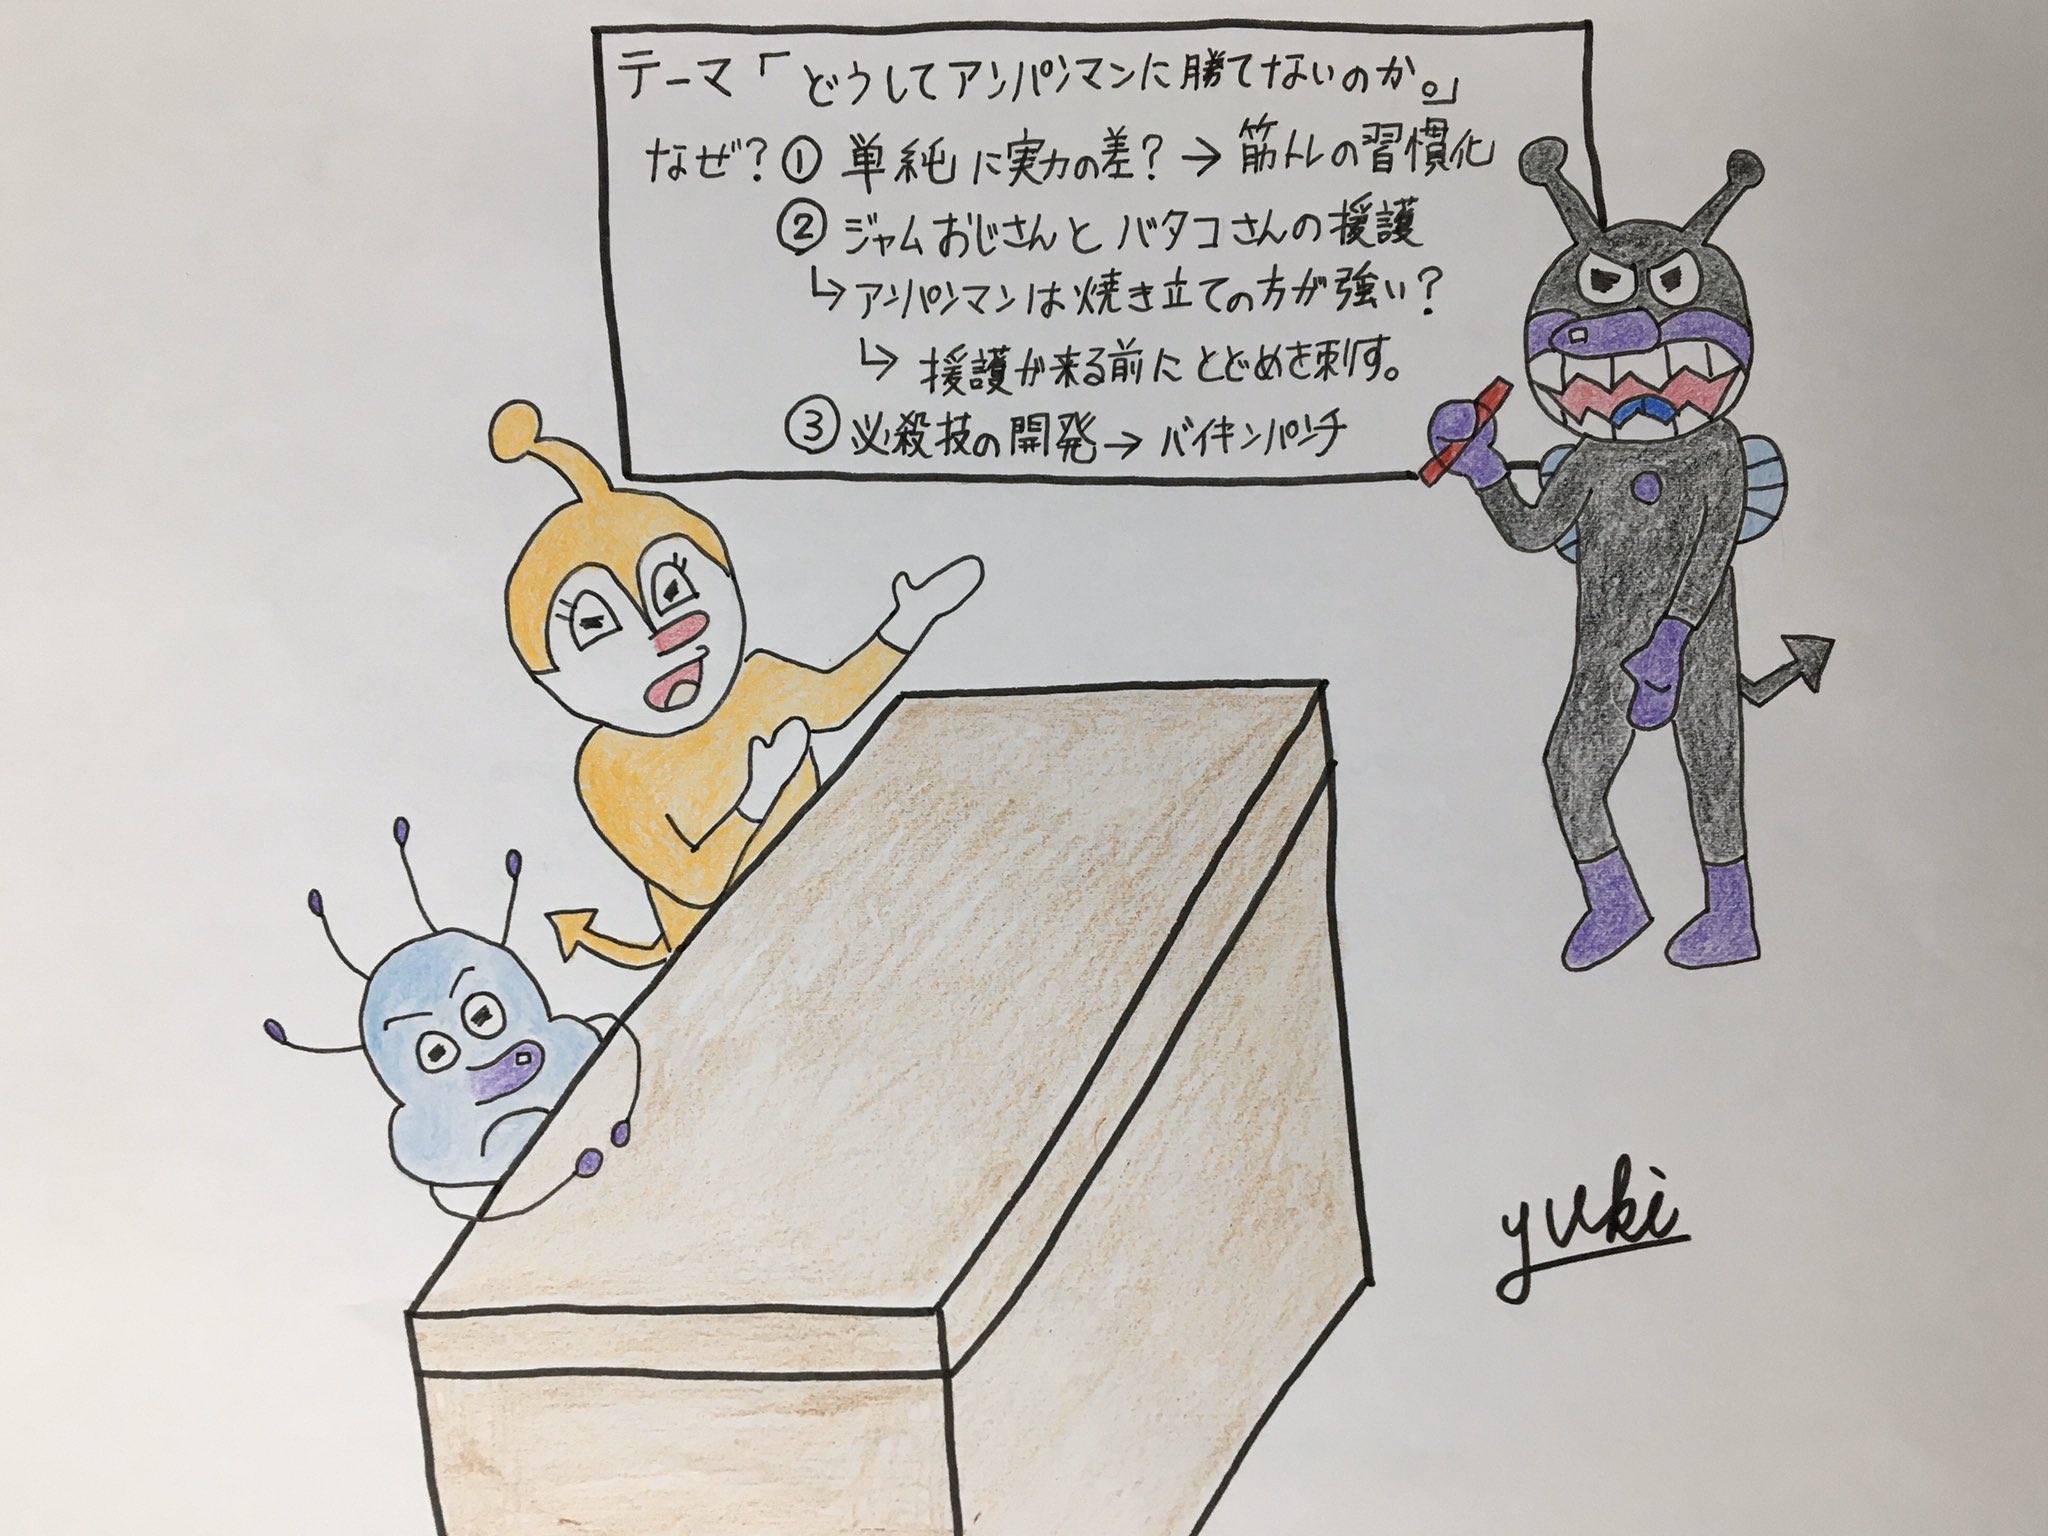 テーマ「どうしてアンパンマンに勝てないのか。」
なぜ?① 単純に実力の差?→筋トレの習慣化
② ジャムおじさんとバタコさんの援護
↳アンパンマンは焼き立ての方が強い?
↳援護が来る前にとどめを刺す。
③ 必殺技の開発→バイキンパンチ
yuki